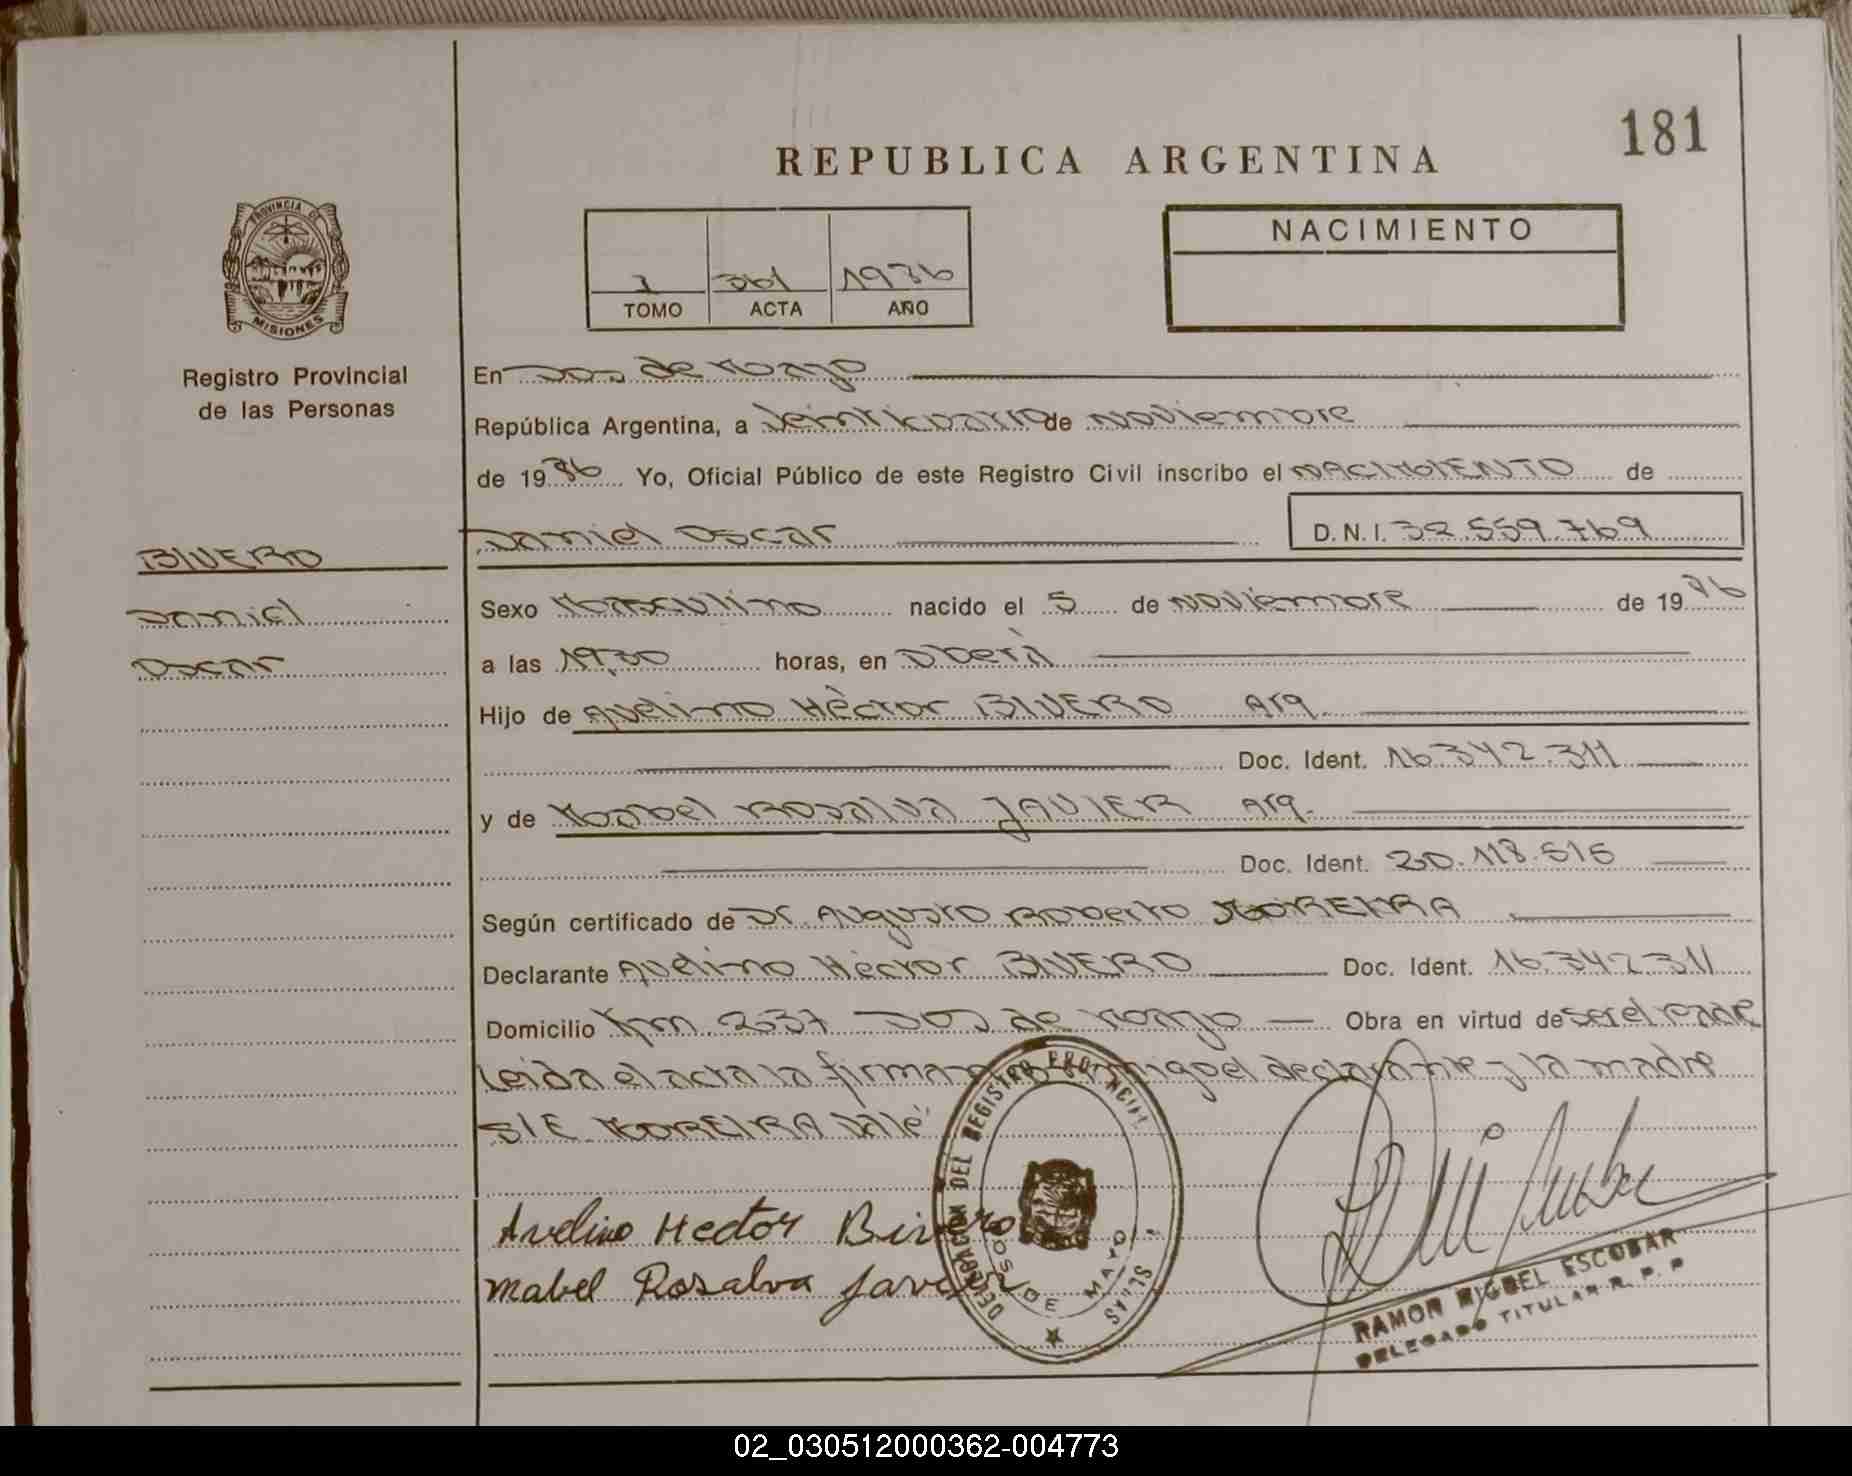 181
REPUBLICA ARGENTINA
PROVINCIA DE
MISIONES
Registro Provincial
de las Personas
1 361 1986
TOMO ACTA AÑO
NACIMIENTO
En Dos de Mayo
República Argentina, a Veinticuatro de Noviembre
de 1986 Yo, Oficial Público de este Registro Civil inscribo el NACIMIENTO de
BIVERO
Daniel Oscar D.N.I. 32.559.769
Daniel
Sexo Masculino nacido el 5 de Noviembre de 1986
Oscar
a las 19,30 horas, en Oberà
Hijo de Avelino Hèctor BIVERO Arg.
Doc. Ident. 16.342.311
y de Mabel Rosalva JAVIER Arg.
Doc. Ident. 20.118.515
Según certificado de Dr. Augusto Roberto MOREIRA
Declarante Avelino Hèctor BIVERO Doc. Ident. 16.342.311
Domicilio Km 237 Dos de Mayo Obra en virtud de ser el Padre
Leida el acta la firman conmigo el declarante y la madre
S/E MOREIRA Vale
Avelino Hector Bivero
Mabel Rosalva Javier
DELEGACION DEL REGISTRO PROVINCIAL
DOS DE MAYO
RAMON MIGUEL ESCOBAR
DELEGADO TITULAR R. P. P
02_030512000362-004773